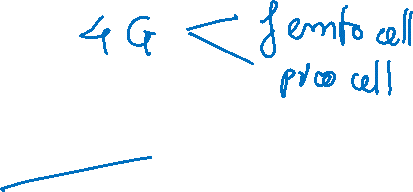 4G < femto cell
pico cell